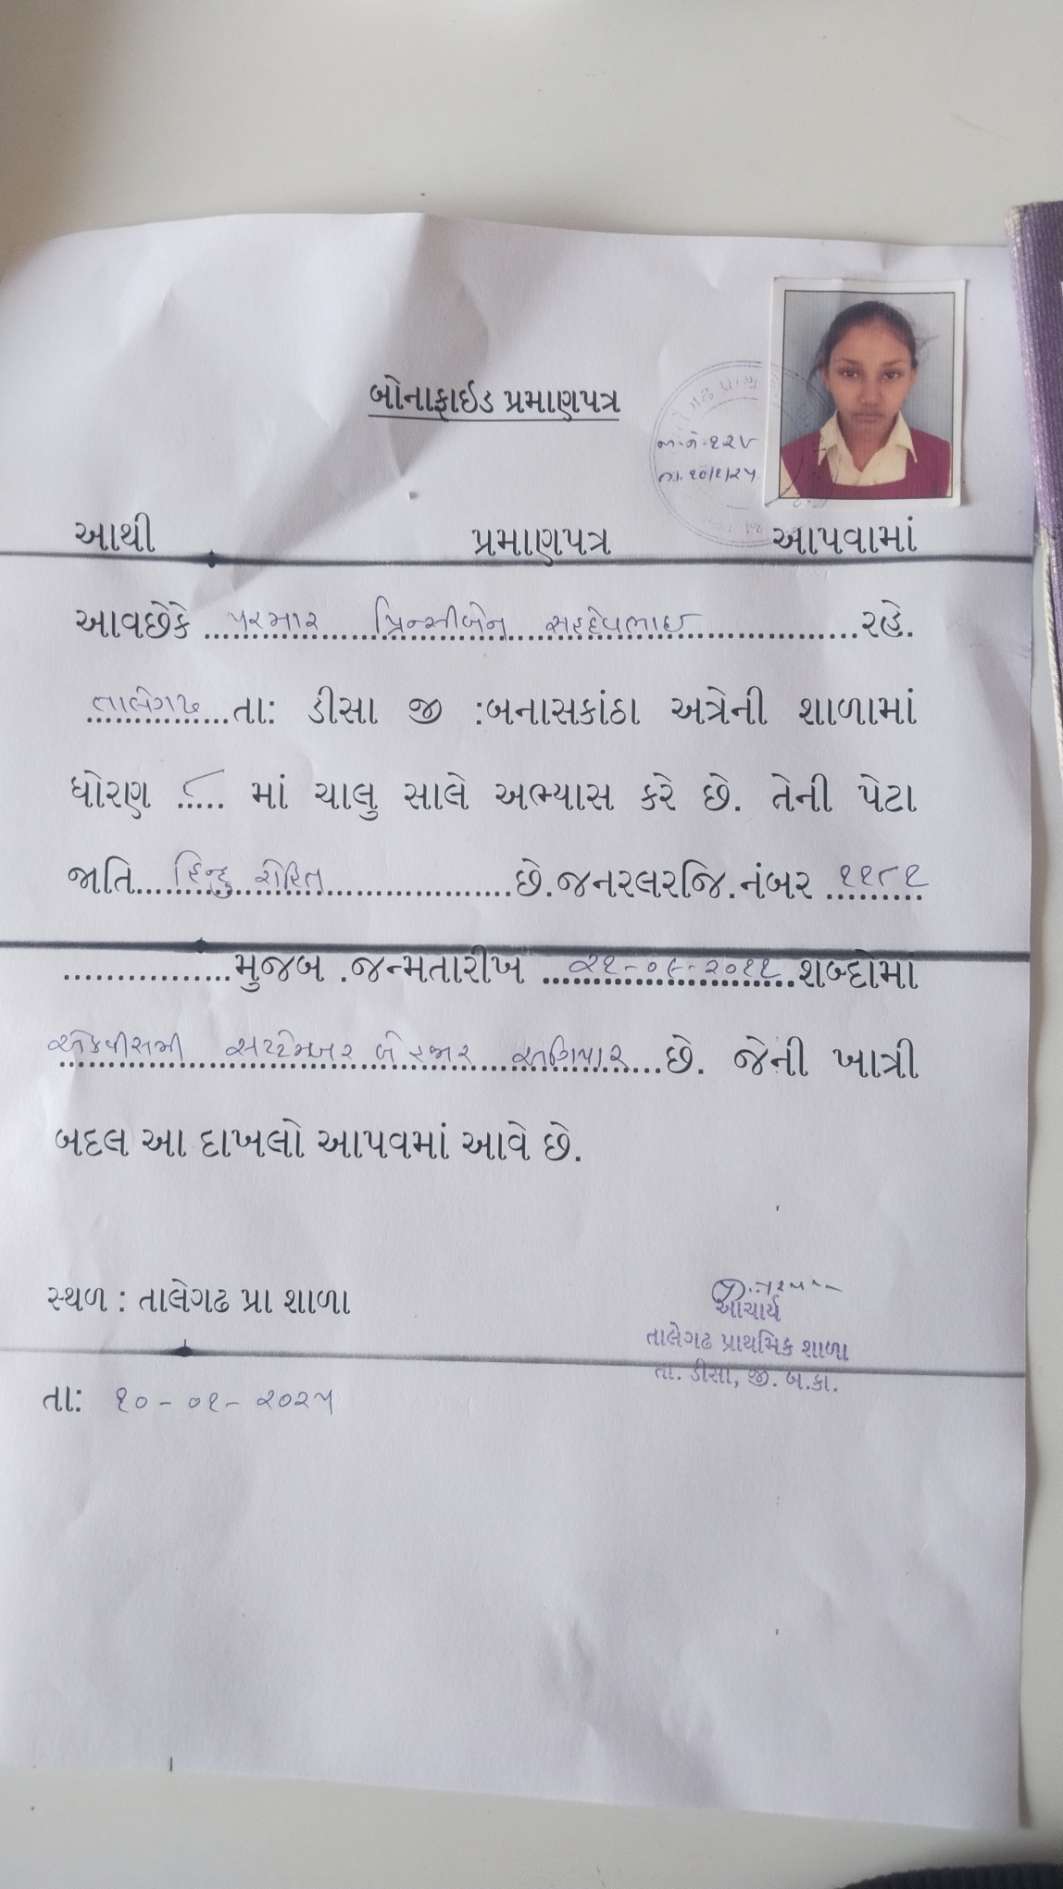 બોનાફાઈડ પ્રમાણપત્ર
જા.નં.૧૨૪
તા.૧૦/૧/૨૫
આથી પ્રમાણપત્ર આપવામાં
આવછેકે પરમાર પ્રિન્સીબેન સહદેવભાઈ રહે.
તાલેગઢ તા: ડીસા જી :બનાસકાંઠા અત્રેની શાળામાં
ધોરણ ૮ માં ચાલુ સાલે અભ્યાસ કરે છે. તેની પેટા
જાતિ હિન્દુ રોહિત છે.જનરલરજિ.નંબર ૧૧૮૧
મુજબ .જન્મતારીખ ૨૧-૦૯-૨૦૧૧ શબ્દોમાં
એકવીસમી સપ્ટેમ્બર બે હજાર અગિયાર છે. જેની ખાત્રી
બદલ આ દાખલો આપવમાં આવે છે.
સ્થળ : તાલેગઢ પ્રા શાળા
આચાર્ય
તાલેગઢ પ્રાથમિક શાળા
તા. ડીસા, જી. બ.કાં.
તા: ૧૦-૦૧-૨૦૨૫